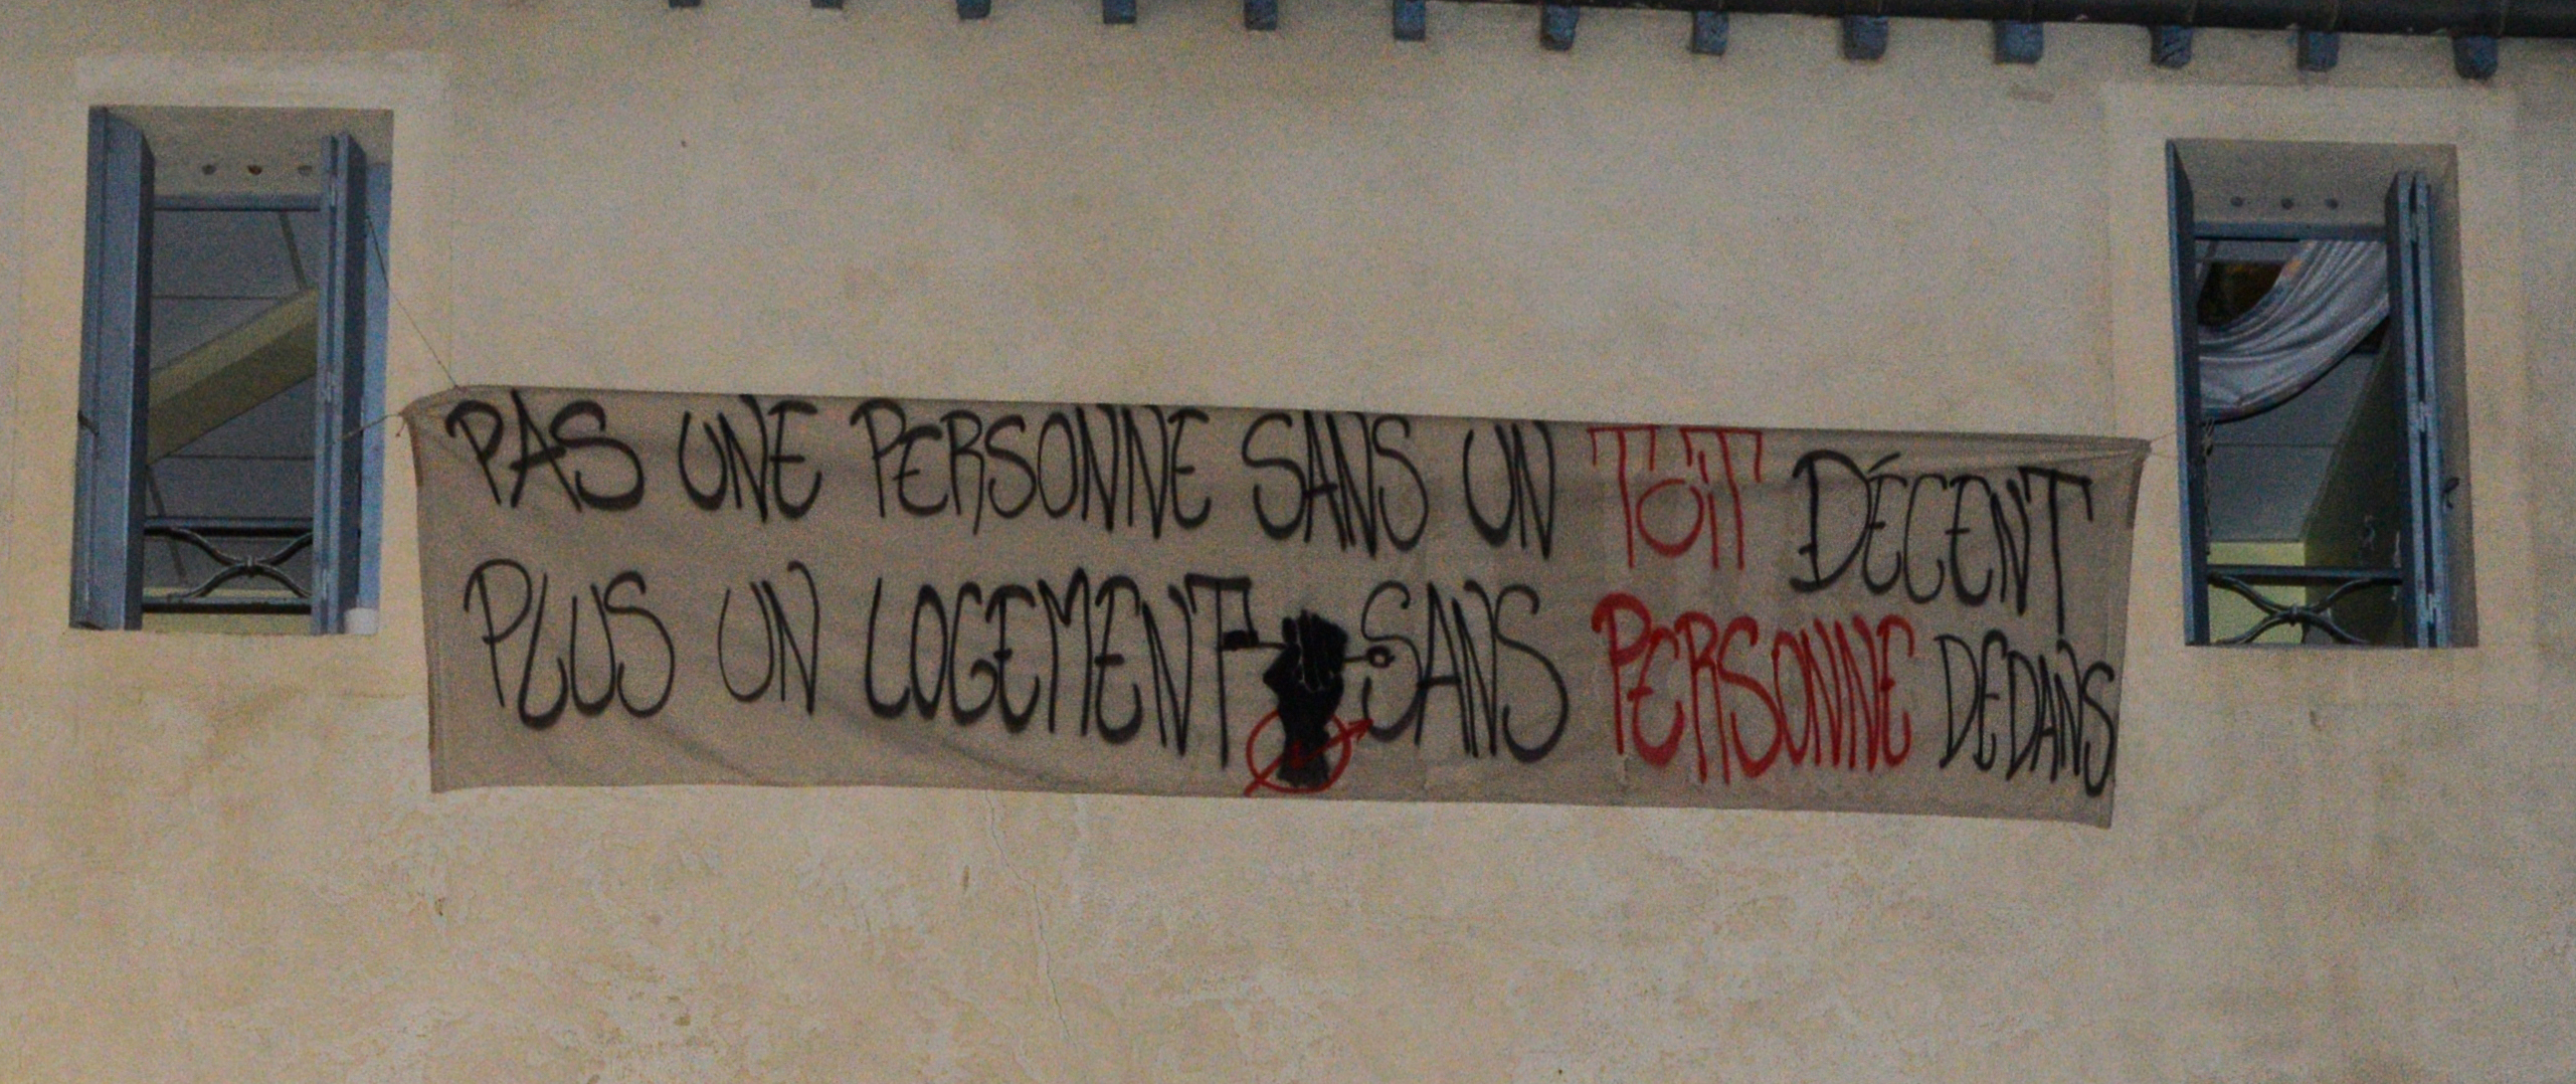 PAS UNE PERSONNE SANS UN TOiT DÉCENT
PLUS UN LOGEMENT SANS PERSONNE DEDANS